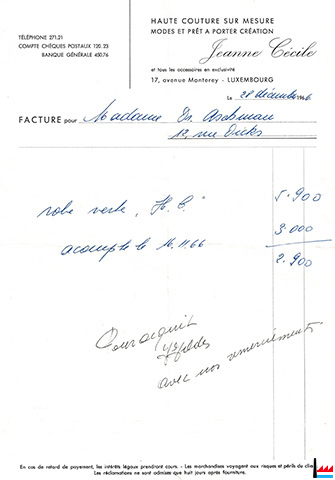 HAUTE COUTURE SUR MESURE
MODES ET PRÊT A PORTER CRÉATION
Jeanne Cécile
et tous les accessoires en exclusivité
17, avenue Monterey - LUXEMBOURG
TÉLÉPHONE 271.21
COMPTE CHÈQUES POSTAUX 120.23
BANQUE GÉNÉRALE 450.76
Le 28 décembre 1966
FACTURE pour Madame Dr. Aschman
12, rue Dicks
robe verte „H. C." 5.900
acompte le 16.11.66 3.000
2.900
Pour acquit
avec nos remerciements
En cas de retard de payement, les intérêts légaux prendront cours. - Les marchandises voyagent aux risques et périls du client
Les réclamations ne sont admises que huit jours après fourniture.